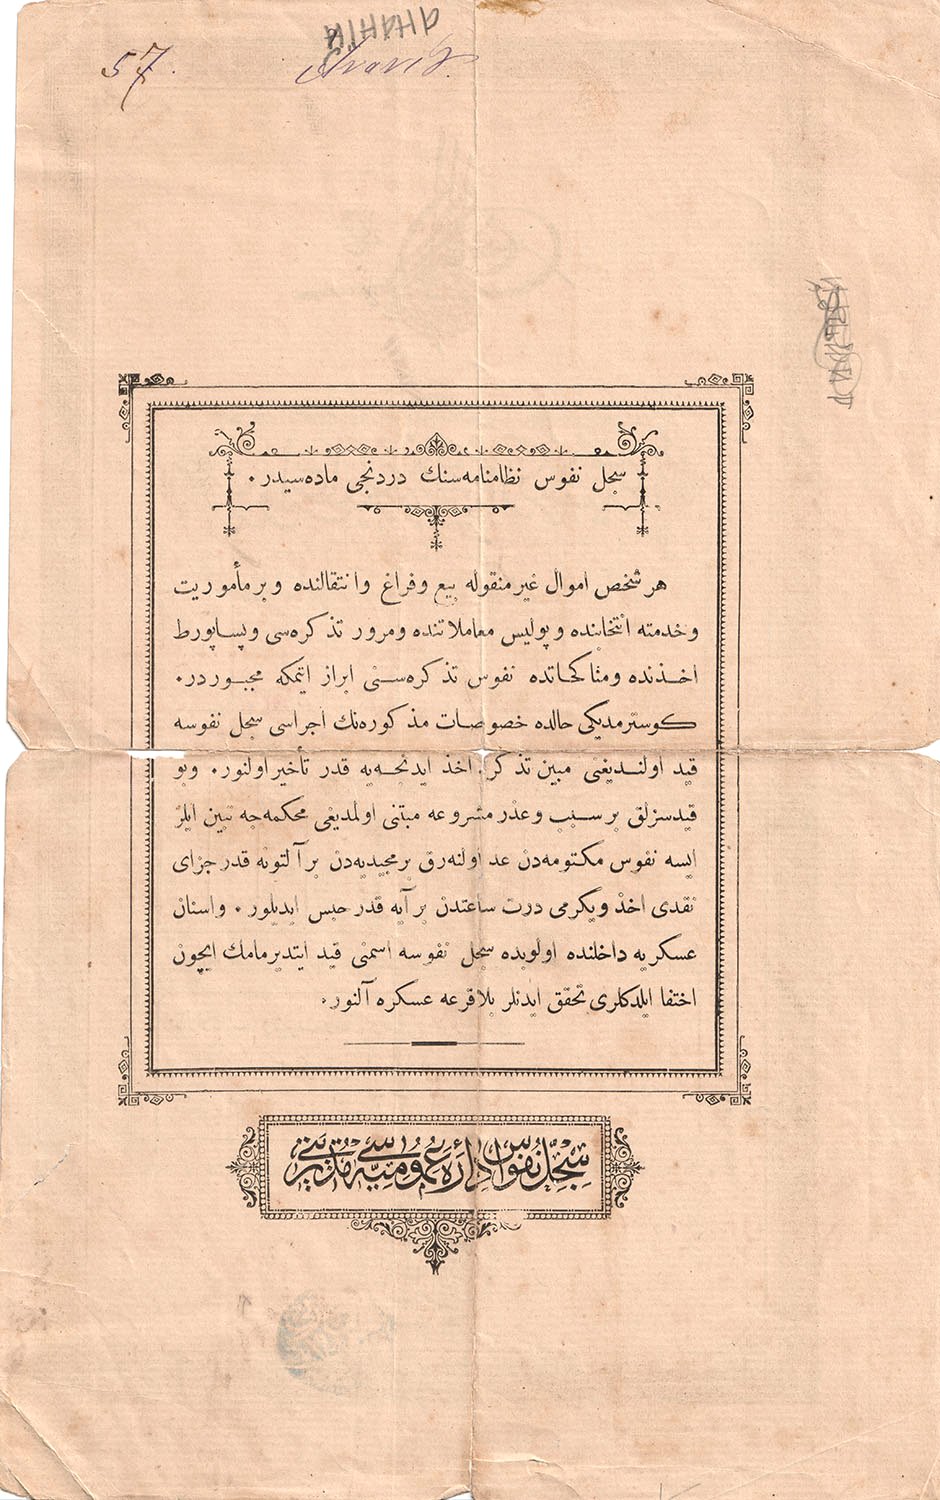 57.
سجل نفوس نظامنامه‌سنك دردنجی ماده‌سیدر ·
هر شخص اموال غیر منقوله بیع وفراغ وانتقالنده وبرمأموریت
وخدمته انتخابنده وپولیس معاملاتنده ومرور تذكره‌سی وپساپورط
اخذنده ومناكحاتده نفوس تذكره‌سنی ابراز ایتمكه مجبوردر ·
كوسترمدیكی حالده خصوصات مذكوره‌نك اجراسی سجل نفوسه
قید اولندیغنی مبین تذكره اخذ ایدنجه‌یه قدر تأخیر اولنور · وبو
قیدسزلق برسبب وعذر مشروعه مبتنی اولمدیغی محكمه‌جه تبین ایلر
ایسه نفوس مكتومه‌دن عد اولنه‌رق برمجیدیه‌دن برآلتونه قدر جزای
نقدی اخذ ویكرمی درت ساعتدن برآیه قدر حبس ایدیلور · واسنان
عسكریه داخلنده اولوبده سجل نفوسه اسمنی قید ایتدیرمامك ایچون
اختفا ایلدكلری تحقق ایدنلر بلاقرعه عسكره آلنور ·
سِجِلِّ نُفُوس اِدَارَهٔ عُمُومِیَّه‌سی مُدِیرِیَّتی